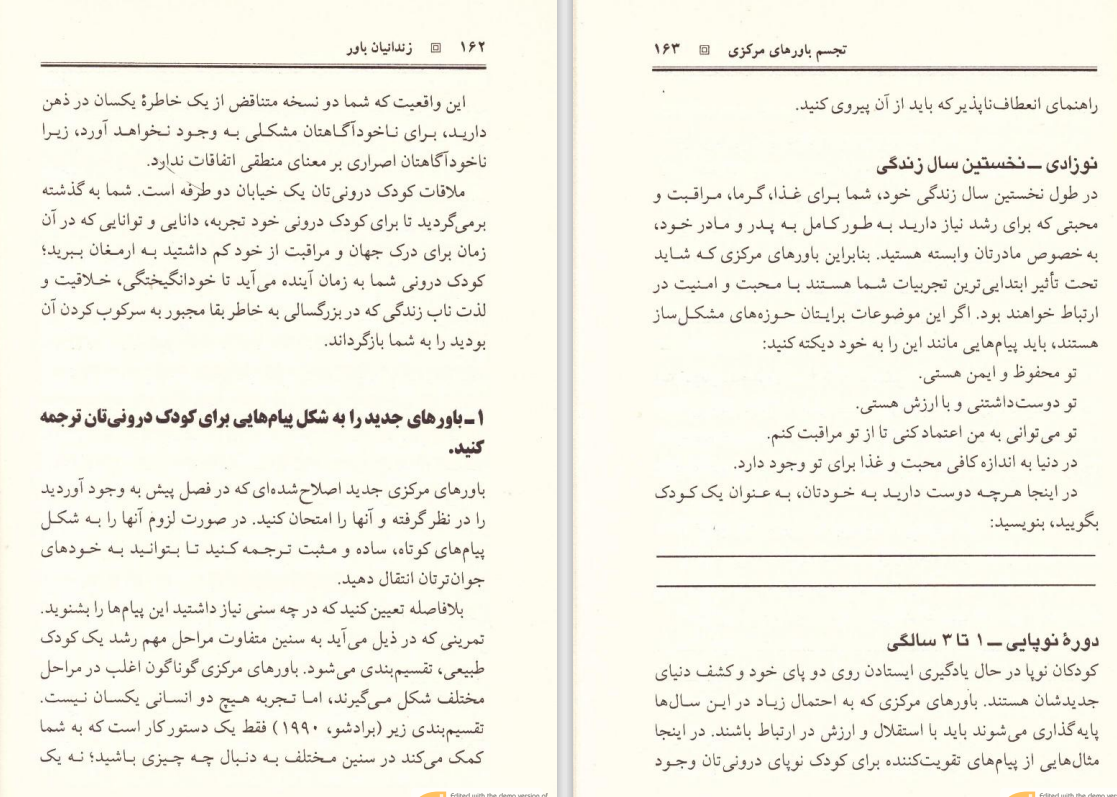 ۱۶۲ زندانیان باور
این واقعیت که شما دو نسخه متناقض از یک خاطرهٔ یکسان در ذهن
دارید، برای ناخودآگاهتان مشکلی به وجود نخواهد آورد، زیرا
ناخودآگاهتان اصراری بر معنای منطقی اتفاقات ندارد.
ملاقات کودک درونی‌تان یک خیابان دو طرفه است. شما به گذشته
برمی‌گردید تا برای کودک درونی خود تجربه، دانایی و توانایی که در آن
زمان برای درک جهان و مراقبت از خود کم داشتید به ارمغان ببرید؛
کودک درونی شما به زمان آینده می‌آید تا خودانگیختگی، خلاقیت و
لذت ناب زندگی که در بزرگسالی به خاطر بقا مجبور به سرکوب کردن آن
بودید را به شما بازگرداند.
۱ـ باورهای جدید را به شکل پیام‌هایی برای کودک درونی‌تان ترجمه
کنید.
باورهای مرکزی جدید اصلاح‌شده‌ای که در فصل پیش به وجود آوردید
را در نظر گرفته و آنها را امتحان کنید. در صورت لزوم آنها را به شکل
پیام‌های کوتاه، ساده و مثبت ترجمه کنید تا بتوانید به خودهای
جوان‌ترتان انتقال دهید.
بلافاصله تعیین کنید که در چه سنی نیاز داشتید این پیام‌ها را بشنوید.
تمرینی که در ذیل می‌آید به سنین متفاوت مراحل مهم رشد یک کودک
طبیعی، تقسیم‌بندی می‌شود. باورهای مرکزی گوناگون اغلب در مراحل
مختلف شکل می‌گیرند، اما تجربه هیچ دو انسانی یکسان نیست.
تقسیم‌بندی زیر (برادشو، ۱۹۹۰) فقط یک دستور کار است که به شما
کمک می‌کند در سنین مختلف به دنبال چه چیزی باشید؛ نه یک
تجسم باورهای مرکزی ۱۶۳
راهنمای انعطاف‌ناپذیر که باید از آن پیروی کنید.
نوزادی ــ نخستین سال زندگی
در طول نخستین سال زندگی خود، شما برای غذا، گرما، مراقبت و
محبتی که برای رشد نیاز دارید به طور کامل به پدر و مادر خود،
به خصوص مادرتان وابسته هستید. بنابراین باورهای مرکزی که شاید
تحت تأثیر ابتدایی‌ترین تجربیات شما هستند با محبت و امنیت در
ارتباط خواهند بود. اگر این موضوعات برایتان حوزه‌های مشکل‌ساز
هستند، باید پیام‌هایی مانند این را به خود دیکته کنید:
تو محفوظ و ایمن هستی.
تو دوست‌داشتنی و با ارزش هستی.
تو می‌توانی به من اعتماد کنی تا از تو مراقبت کنم.
در دنیا به اندازه کافی محبت و غذا برای تو وجود دارد.
در اینجا هرچه دوست دارید به خودتان، به عنوان یک کودک
بگویید، بنویسید:
دورهٔ نوپایی ــ ۱ تا ۳ سالگی
کودکان نوپا در حال یادگیری ایستادن روی دو پای خود و کشف دنیای
جدیدشان هستند. باورهای مرکزی که به احتمال زیاد در این سال‌ها
پایه‌گذاری می‌شوند باید با استقلال و ارزش در ارتباط باشند. در اینجا
مثال‌هایی از پیام‌های تقویت‌کننده برای کودک نوپای درونی‌تان وجود